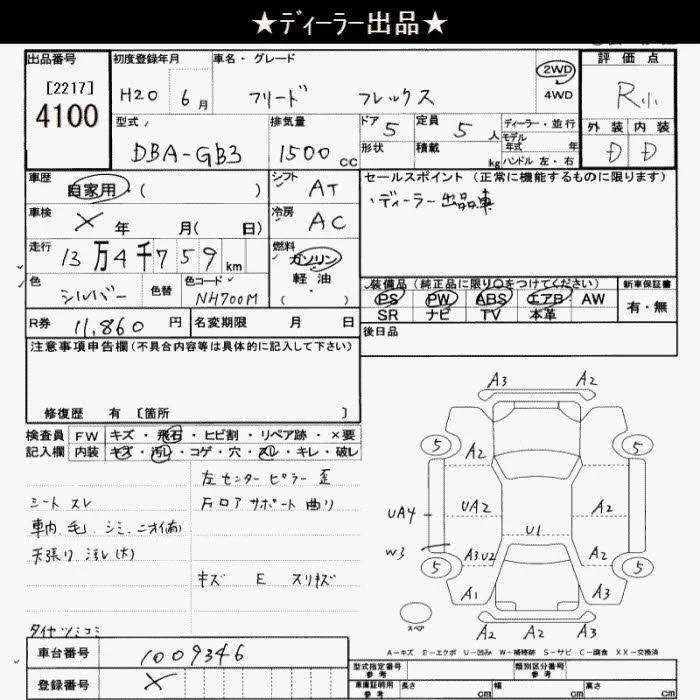 ★ディーラー出品★
出品番号
[2217]
4100
初度登録年月
H20 6月
車名・グレード
フリード フレックス
2WD
4WD
評価点
R小
外装 内装
D D
型式
DBA-GB3
排気量
1500cc
ドア 5
形状
定員 5人
積載 kg
ディーラー・並行
モデル年式 年
ハンドル 左・右
車歴
自家用・( )
シフト AT
車検
× 年 月( 日)
冷房 AC
走行
13万4千759km
燃料
ガソリン
軽油
・( )
色
シルバー
色替
色コード
NH700M
R券 11,860円
名変期限 月 日
セールスポイント(正常に機能するものに限ります)
・ディーラー出品車
装備品(純正品に限り○をつけてください)
PS PW ABS エアB AW
SR ナビ TV 本革
新車保証書
有・無
後日品
注意事項申告欄(不具合内容等は具体的に記入して下さい)
修復歴 有 〔箇所 〕
検査員 FW キズ・飛石・ヒビ割・リペア跡・×要
記入欄 内装 キズ・汚レ・コゲ・穴・スレ・キレ・破レ
左センターピラー歪
シート スレ
ドロアサポート曲り
車内 毛 シミ ニオイ(有)
天張り 汚レ(大)
キズ E スリキズ
タイヤツミコミ
A3 A2
5 5
A2
UA4 UA2 A2
U1
W3 A3.U2 A2
5 5
A1 A3
スペア
A2 A2 A3
A-キズ E-エクボ U-凹み W-補修跡 S-サビ C-腐食 XX-交換済
車台番号 1009346
登録番号 ×
型式指定番号
参考
類別区分番号
参考
車庫証明用
参考
長さ cm 幅 cm 高さ cm